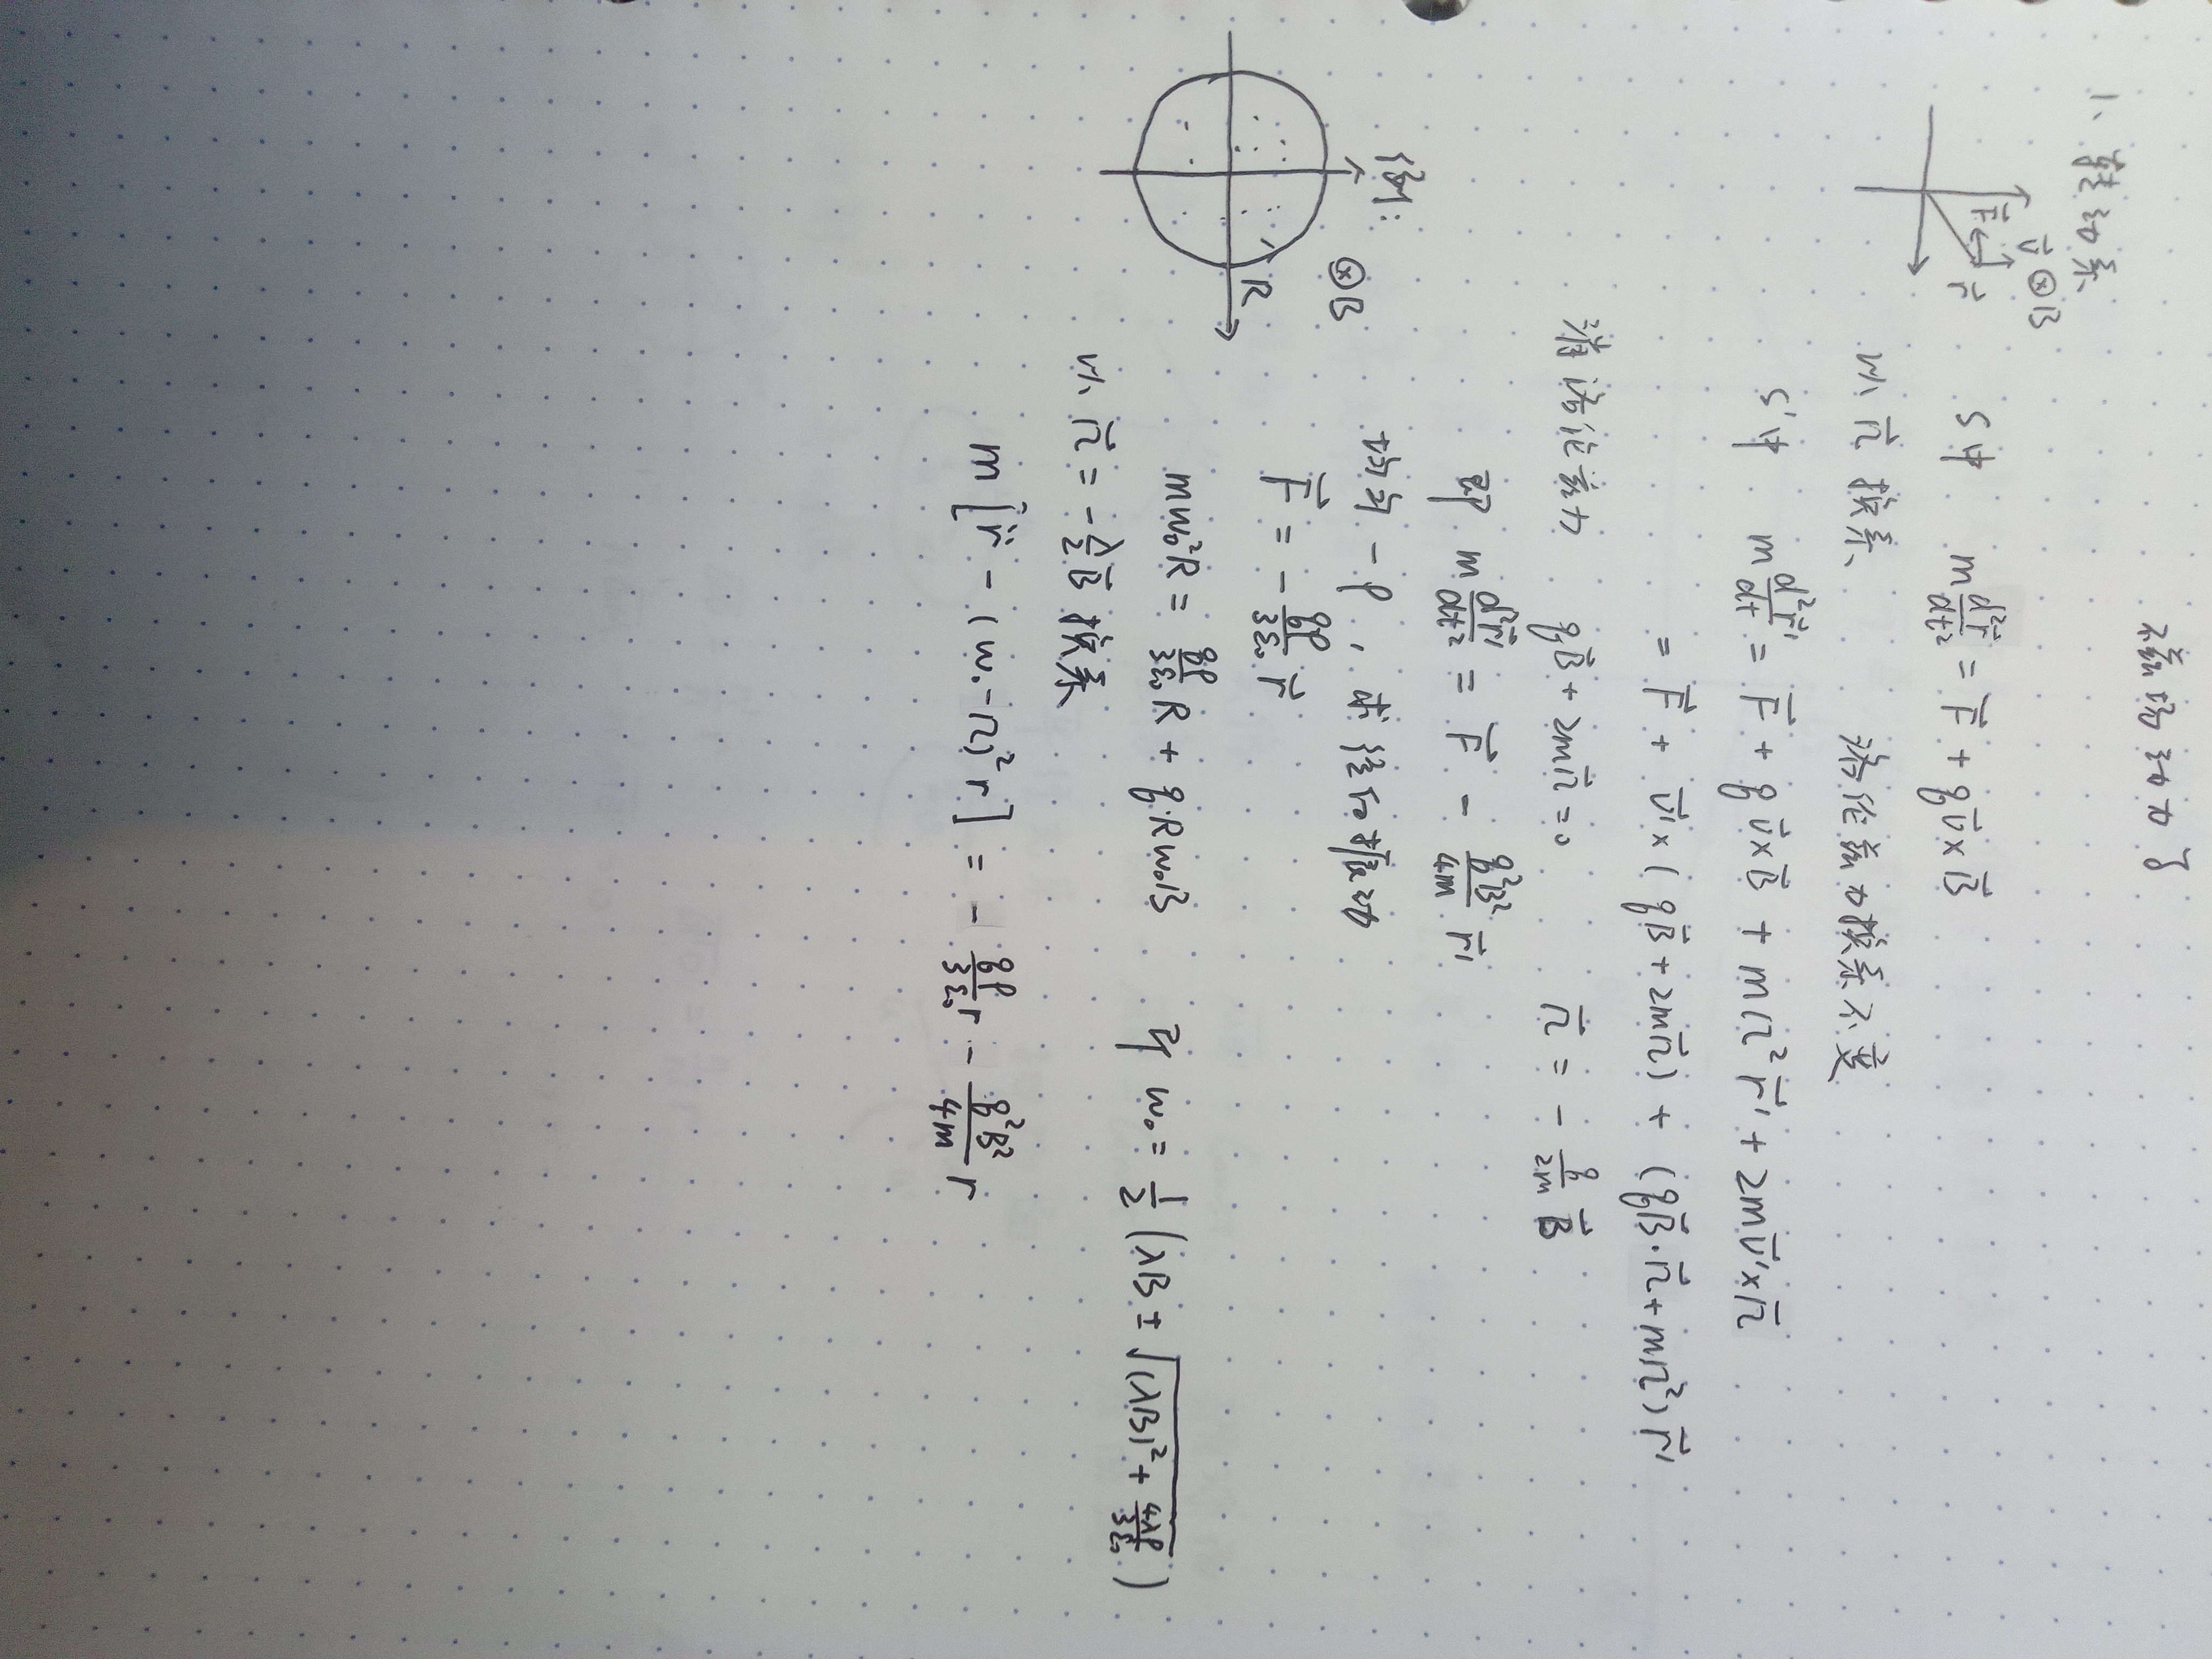 磁场动力学
1、转动系
⊗B
v⃗
F⃗
r⃗
S中 m d²r⃗/dt² = F⃗ + q v⃗×B⃗
以 Ω⃗ 换系 洛伦兹力换系不变
S'中 m d²r⃗'/dt = F⃗ + q v⃗×B⃗ + mΩ²r⃗' + 2m v⃗'×Ω⃗
= F⃗ + v⃗'×(qB⃗+2mΩ⃗) + (qB⃗·Ω⃗+mΩ²) r⃗'
消洛伦兹力 qB⃗+2mΩ⃗=0 Ω⃗ = - q/2m B⃗
即 m d²r⃗'/dt² = F⃗ - q²B²/4m r⃗'
例:
⊗B
R
均匀 -ρ, 求径向振动
F⃗ = - qρ/3ε₀ r⃗
mω₀²R = qρ/3ε₀ R + q·Rω₀B 得 ω₀ = 1/2 (λB ± √((λB)² + 4λρ/3ε₀))
以 Ω⃗ = - λ/2 B⃗ 换系
m[r̈ - (ω₀-Ω)²r] = - qρ/3ε₀ r - q²B²/4m r